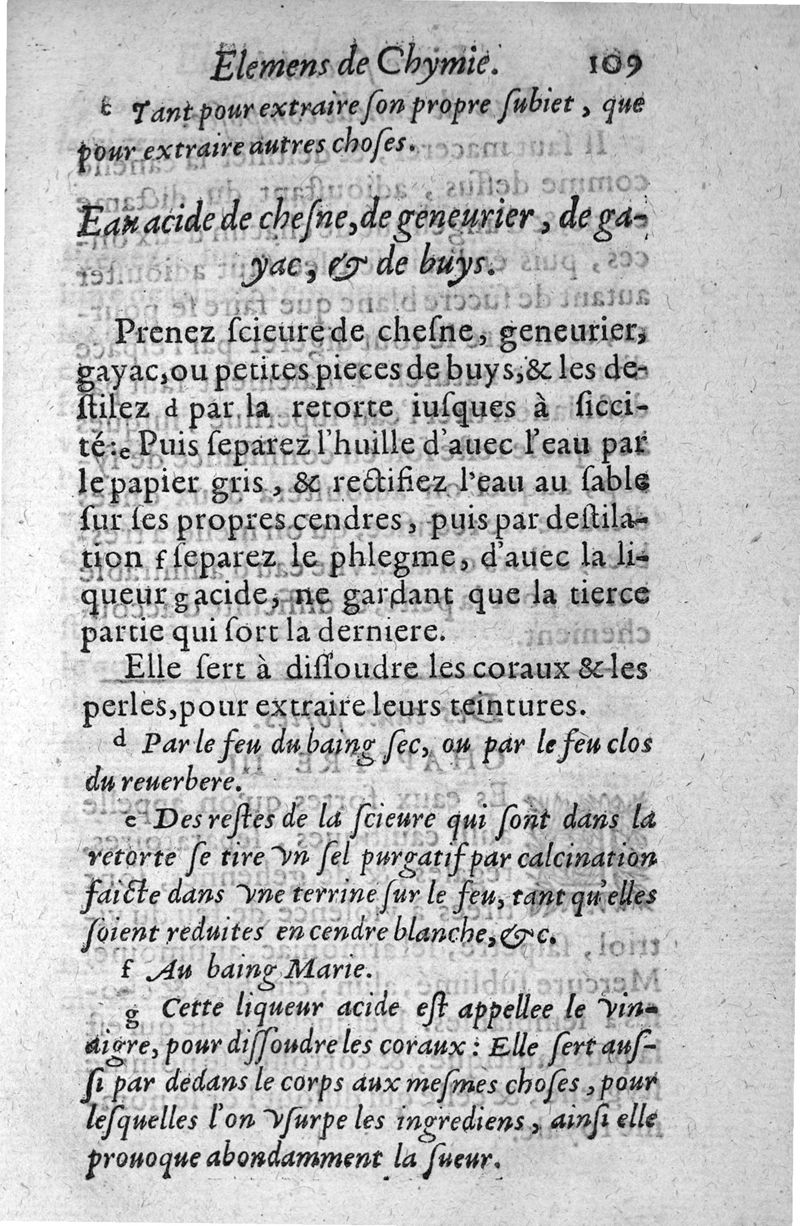 Elemens de Chymie. 109
t Tant pour extraire ſon propre ſubiet, que
pour extraire autres choſes.
Eau acide de cheſne, de geneurier, de ga-
yac, & de buys.
Prenez ſcieure de cheſne, geneurier,
gayac, ou petites pieces de buys, & les de-
ſtilez d par la retorte iuſques à ſicci-
té: e Puis ſeparez l'huille d'auec l'eau par
le papier gris, & rectifiez l'eau au ſable
ſur ſes propres cendres, puis par deſtila-
tion f ſeparez le phlegme, d'auec la li-
queur g acide, ne gardant que la tierce
partie qui ſort la derniere.
Elle ſert à diſſoudre les coraux & les
perles, pour extraire leurs teintures.
d Par le feu du baing ſec, ou par le feu clos
du reuerbere.
e Des reſtes de la ſcieure qui ſont dans la
retorte ſe tire vn ſel purgatif par calcination
faicte dans vne terrine ſur le feu, tant qu'elles
ſoient reduites en cendre blanche, &c.
f Au baing Marie.
g Cette liqueur acide eſt appellee le vin-
aigre, pour diſſoudre les coraux: Elle ſert auſ-
ſi par dedans le corps aux meſmes choſes, pour
leſquelles l'on vſurpe les ingrediens, ainſi elle
prouoque abondamment la ſueur.